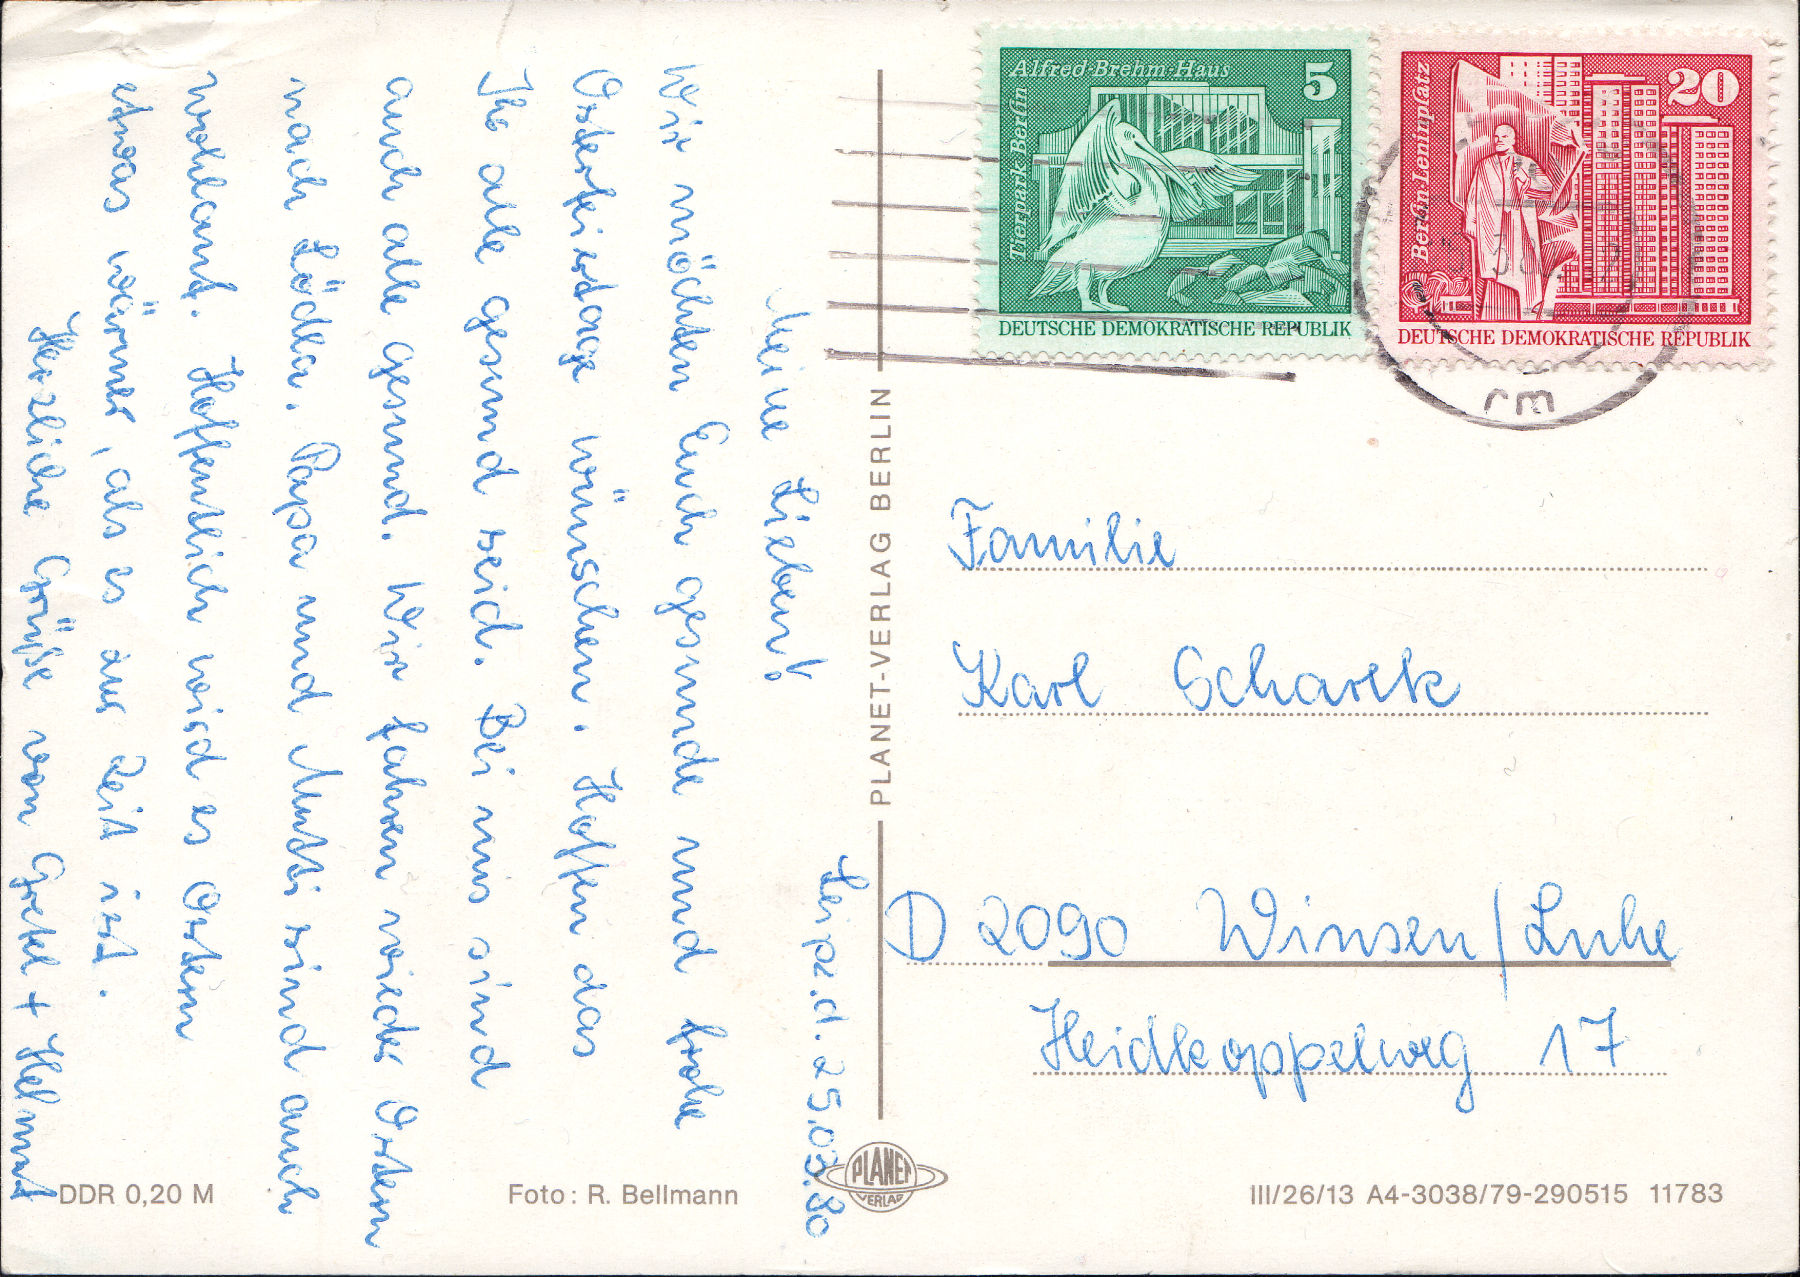 Leipz. d. 25.03.80
Meine Lieben!
Wir möchten Euch gesunde und frohe
Osterfeiertage wünschen. Hoffen das
Ihr alle gesund seid. Bei uns sind
auch alle gesund. Wir fahren wieder Ostern
nach Lödla. Papa und Mutti sind auch
wohlauf. Hoffentlich wird es Ostern
etwas wärmer, als es zur Zeit ist.
Herzliche Grüße von Gretel + Helmut
DDR 0,20 M
Foto: R. Bellmann
PLANET-VERLAG BERLIN
PLANET
VERLAG
Alfred-Brehm-Haus
5
Tierpark Berlin
DEUTSCHE DEMOKRATISCHE REPUBLIK
20
Berlin·Leninplatz
DEUTSCHE DEMOKRATISCHE REPUBLIK
rm
Familie
Karl Scharek
D 2090 Winsen/Luhe
Heidkoppelweg 17
III/26/13 A4-3038/79-290515 11783